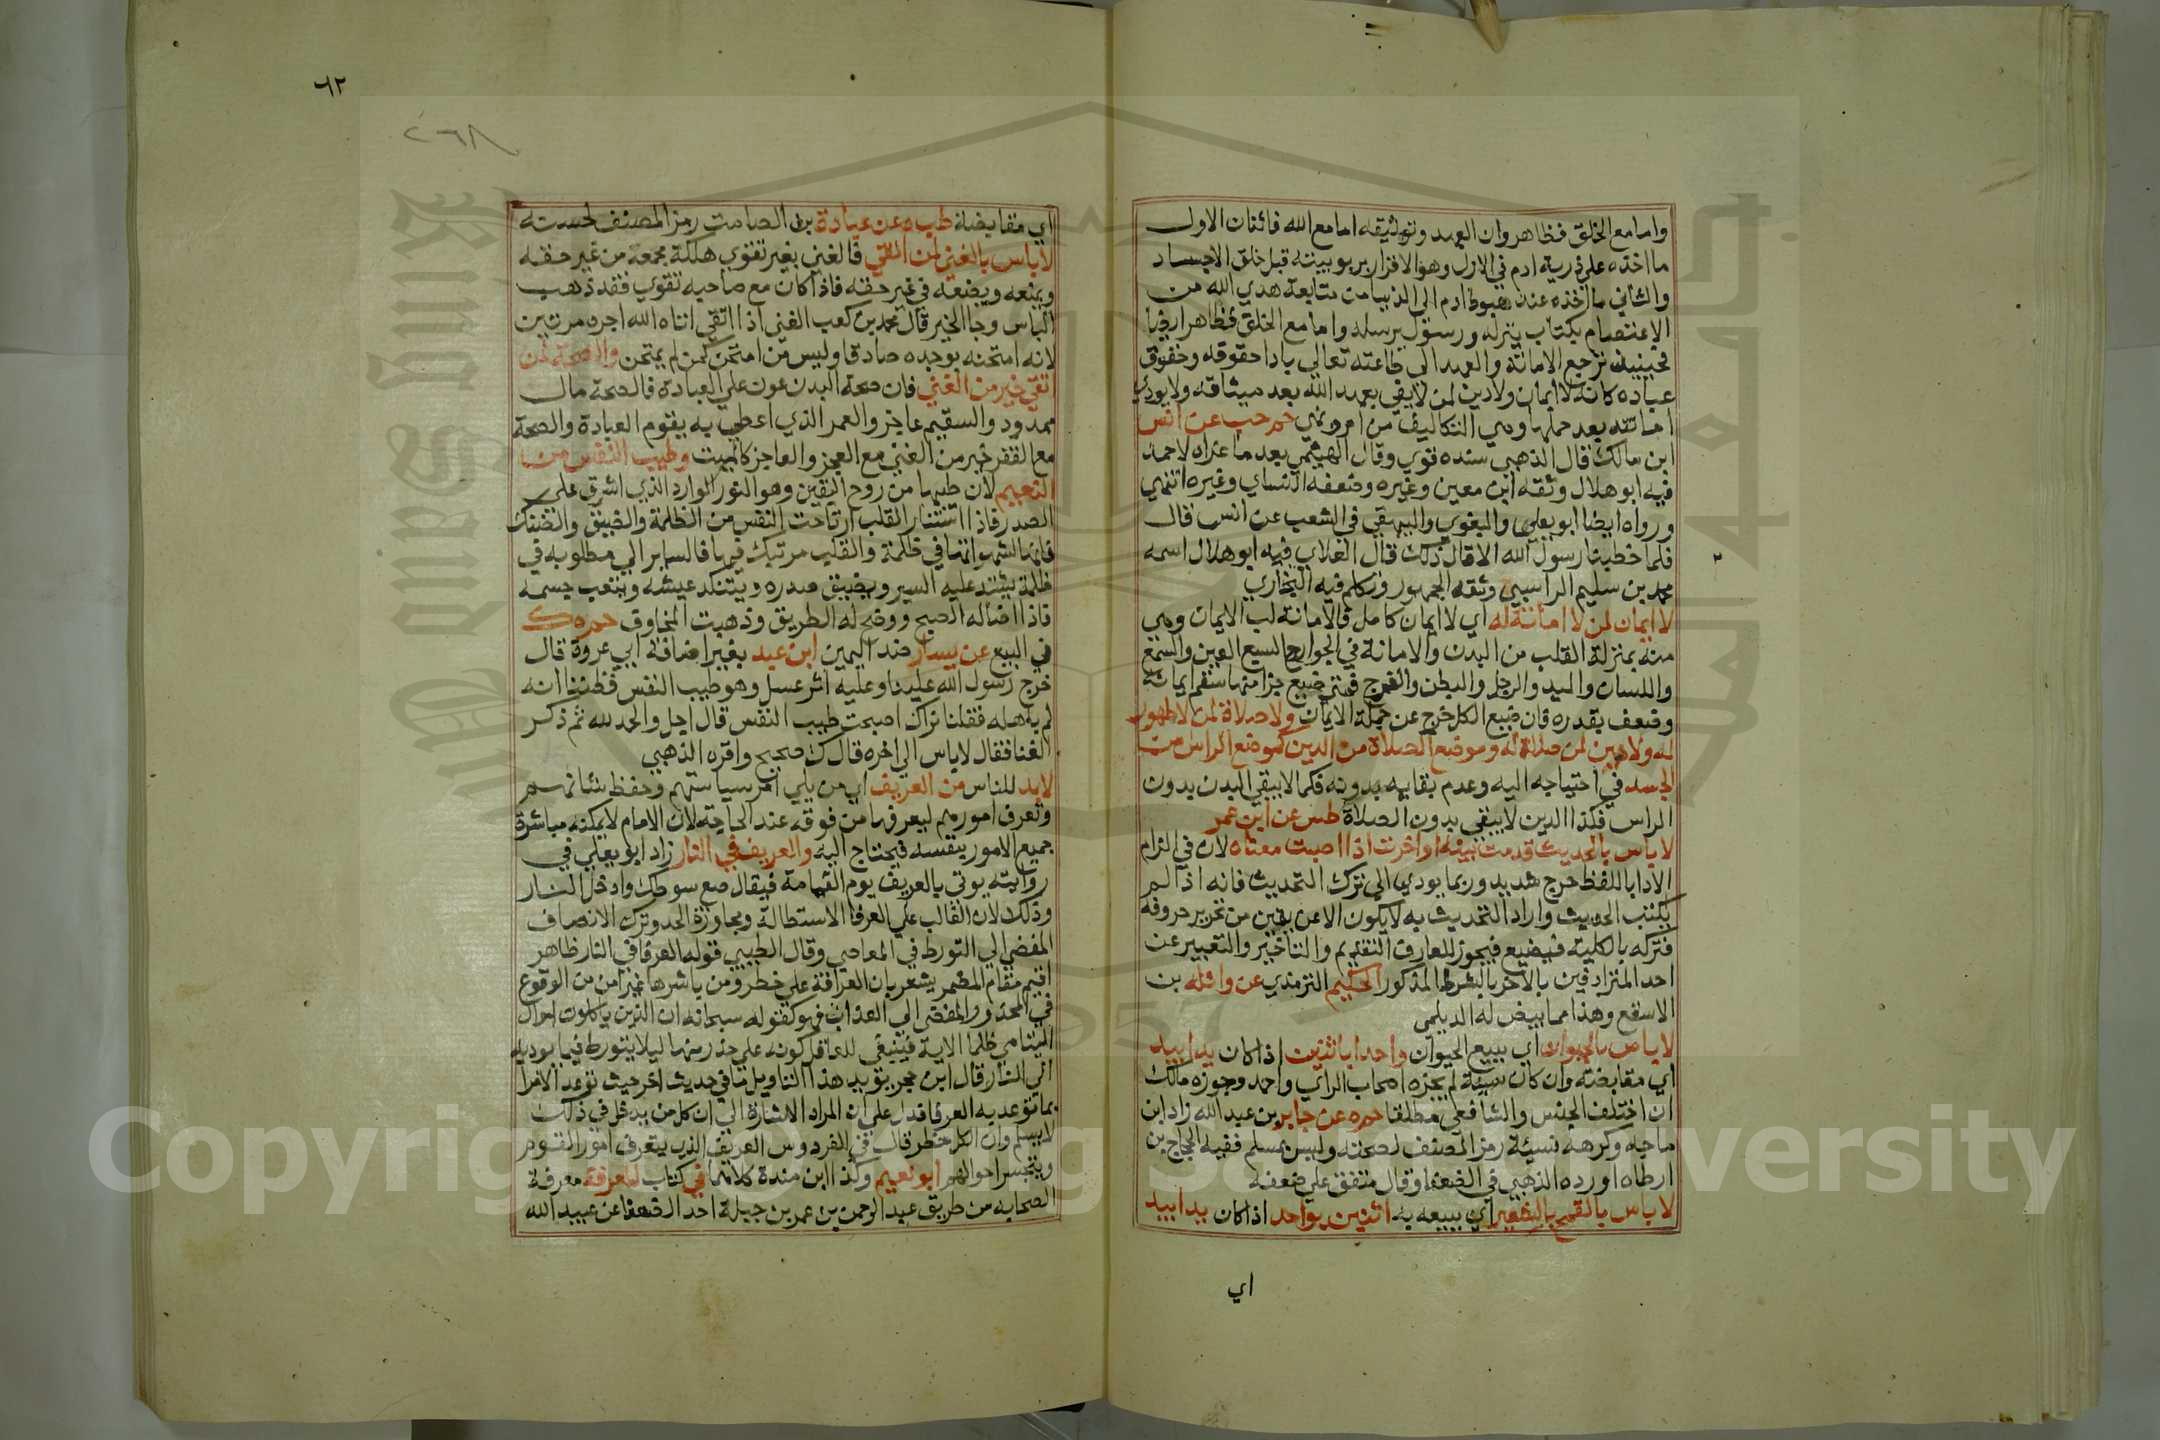 واما مع الخلق فظاهر وان العهد وتوثيقه اما مع الله فاثنان الاول
ما اخذه علي ذرية ادم في الازل وهو الاقرار بربوبيته قبل خلق الاجساد
والثاني ما اخذه عند هبوط ادم الي الدنيا من متابعة هدي الله من
الاعتصام بكتاب ينزله ورسول يرسله واما مع الخلق فظاهر ايضا
فحينيذ ترجع الامانة والعهد الي طاعته تعالي بادا حقوقه وحقوق
عباده كانه لا ايمان ولا دين لمن لا يفي بعهد الله بعد ميثاقه ولا يودي
امانته بعد حملها وهي التكاليف من امر ونهي حم حب عن انس
ابن مالك قال الذهبي سنده قوي وقال الهيثمي بعد ما عزاه لاحمد
فيه ابو هلال وثقه ابن معين وغيره وضعفه النساي وغيره انتهي
ورواه ايضا ابو يعلي والبغوي والبيهقي في الشعب عن انس قال
فلما خطبنا رسول الله الا قال ذلك قال العلاي فيه ابو هلال اسمه
محمد بن سليم الراسبي وثقه الجمهور وتكلم فيه البخاري
لا ايمان لمن لا امانة له اي لا ايمان كامل فالامانة لب الايمان وهي
منه بمنزلة القلب من البدن والامانة في الجوارح السبع العين والسمع
واللسان واليد والرجل والبطن والفرج فمن ضيع جزا منها سقم ايمانه
وضعف بقدره فان ضيع الكل خرج عن جملة الايمان ولا صلاة لمن لا طهور
له ولا دين لمن صلاة له وموضع الصلاة من الدين كموضع الراس من
الجسد في احتياجه اليه وعدم بقايه بدونه فكما لا يبقي البدن بدون
الراس فكذا الدين لا يبقي بدون الصلاة طس عن ابن عمر
لا باس بالحديث قدمت فيه او اخرت اذا اصبت معناه لان في الزام
الادا باللفظ حرج شديد وربما يودي الي ترك التحديث فانه اذا لم
يكتب الحديث واراد التحديث به لا يكون الا عن يقين من تحرير حروفه
فتركه بالكلية فيضيع فيجوز للعارف التقديم والتاخير والتعبير عن
احد المترادفين بالاخر بالشرط المذكور الحكيم الترمذي عن واثلة بن
الاسقع وهذا مما بيض له الديلمي
لا باس بالحيوان اي ببيع الحيوان واحدا باثنين اذا كان يدا بيد
اي مقابضة وان كان نسيئة لم يجزه اصحاب الراي واحمد وجوزه مالك
ان اختلف الجنس والشافعي مطلقا حم ه عن جابر بن عبد الله زاد ابن
ماجه وكرهه نسئة رمز المصنف لصحته وليس بمسلم ففيه الحجاج بن
ارطاه اورده الذهبي في الضعفا وقال متفق علي ضعفه
لا باس بالقمح بالشعير اي ببيعه به اثنين بواحد اذا كان يدا بيد
اي
٦٢
٢٦٨
اي مقابضة طب ه عن عبادة بن الصامت رمز المصنف لحسنه
لا باس بالغني لمن اتقي فالغني بغير تقوي هلكة يجمعه من غير حقه
ويمنعه ويضعه في غير حقه فاذا كان مع صاحبه تقوي فقد ذهب
الباس وجا الخير قال محمد بن كعب الغني اذا اتقي اتاه الله اجره مرتين
لانه امتحنه بوجده صادقا وليس من امتحن كمن لم يمتحن والصحة لمن
اتقي خير من الغني فان صحة البدن عون علي العبادة فالصحة مال
ممدود والسقيم عاجز والعمر الذي اعطي به يقوم العبادة والصحة
مع الفقر خير من الغني مع العجز والعاجز كالميت وطيب النفس من
النعيم لان طيبها من روح اليقين وهو النور الوارد الذي اشرق علي
الصدر فاذا استنار القلب ارتاحت النفس من الظلمة والضيق والضنك
فانها لشهواتها في ظلمة والقلب مرتبك فيها فالساير الي مطلوبه في
ظلمة يشتد عليه السير ويضيق صدره ويتنكد عيشه ويتعب جسمه
فاذا اضاله الصبح ووضح له الطريق وذهبت المخاوف حم ه ك
في البيع عن يسار ضد اليمين ابن عبد بغير اضافة ابي عروة قال
خرج رسول الله علينا وعليه اثر غسل وهو طيب النفس فظننا انه
لم باهله فقلنا نراك اصبحت طيب النفس قال اجل والحمد لله ثم ذكر
الغنا فقال لاباس الي اخره قال ك صحيح واقره الذهبي
لا بد للناس من العريف اي من يلي امر سياستهم وحفظ شانهم
وتعرف امورهم ليعرفها من فوقه عند الحاجة لان الامام لا يمكنه مباشرة
جميع الامور بنفسه فيحتاج اليه والعريف في النار زاد ابو يعلي في
روايته يوتي بالعريف يوم القيامة فيقال ضع سوطك وادخل النار
وذلك لان الغالب علي العرفا الاستطالة ومجاوزة الحد وترك الانصاف
المفضي الي التورط في المعاصي وقال الطيبي قوله العرفا في النار ظاهر
اقيم مقام المضمر يشعر بان العرافة علي خطر ومن باشرها غير امن من الوقوع
في المحذور المفضي الي العذاب فهو كقوله سبحانه ان الذين ياكلون اموال
اليتامي ظلما الاية فينبغي للعاقل كونه علي حذر منها ليلا يتورط فيما يوديه
الي النار قال ابن حجر يويد هذا التاويل ما في حديث اخر حيث توعد الامرا
بما توعد به العرفا فدل علي ان المراد الاشارة الي ان كل من يدخل في ذلك
لا يسلم وان الكل خطر قال في الفردوس العريف الذي يتعرف امور القوم
ويتجسس احوالهم ابو نعيم وكذا ابن مندة كلاهما في كتاب المعرفة معرفة
الصحابه من طريق عبد الرحمن بن عمر بن جبلة احد الضعفا عن عبيد الله